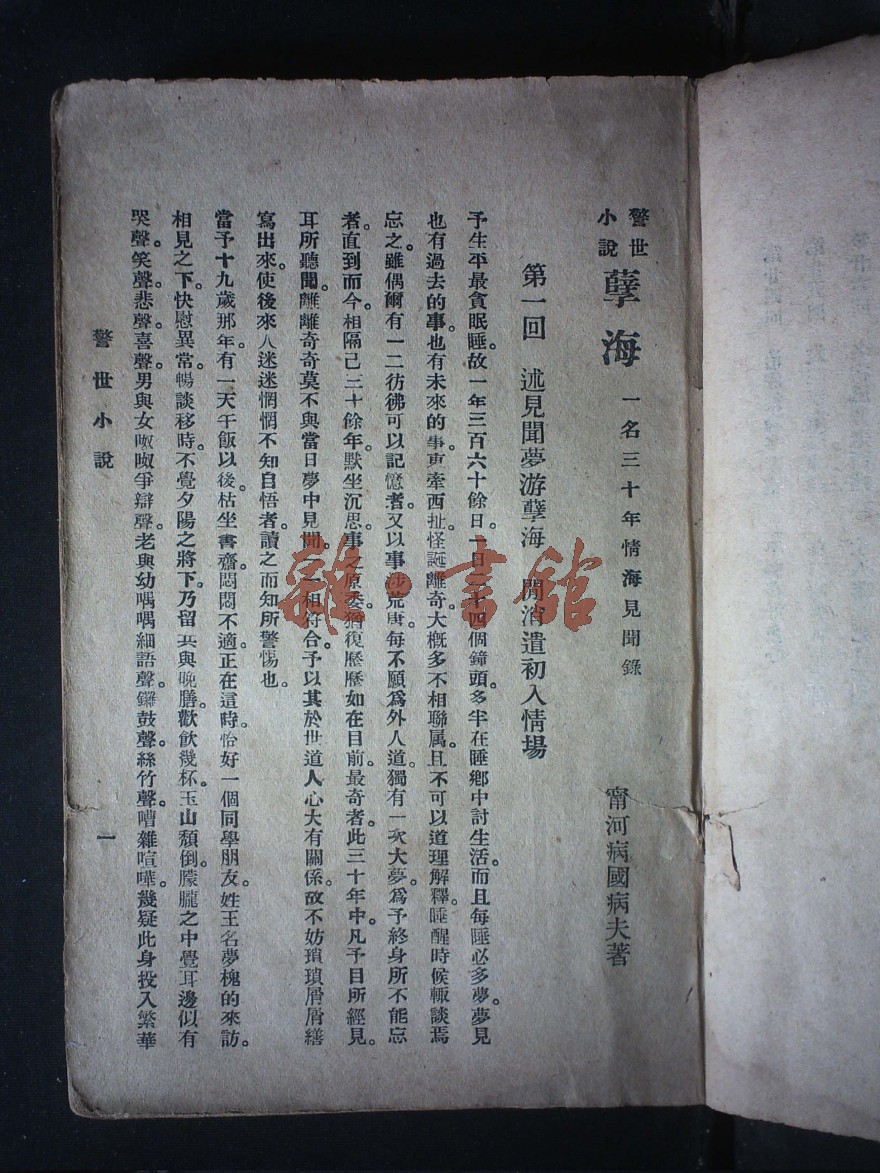 警世小說 孽海 一名三十年情海見聞錄
甯河病國病夫著
第一回 述見聞夢游孽海 閒消遣初入情場
予生平最貪眠睡。故一年三百六十餘日。一日二十四個鐘頭。多半在睡鄉中討生活。而且每睡必多夢。夢見
也有過去的事。也有未來的事。東牽西扯。怪誕離奇。大槪多不相聯屬。且不可以道理解釋。睡醒時候。輙談焉
忘之。雖偶爾有一二彷彿可以記憶者。又以事涉荒唐。每不願爲外人道。獨有一次大夢。爲予終身所不能忘
者。直到而今。相隔已三十餘年。默坐沉思。事之原委。猶復歷歷如在目前。最奇者。此三十年中。凡予目所經見。
耳所聽聞。離離奇奇。莫不與當日夢中見聞。一一相符合。予以其於世道人心大有關係。故不妨瑣瑣屑屑。繕
寫出來。使後來人迷迷惘惘不知自悟者。讀之而知所警惕也。
當予十九歲那年。有一天午飯以後。枯坐書齋。悶悶不適。正在這時。恰好一個同學朋友。姓王名夢槐的來訪。
相見之下。快慰異常。暢談移時。不覺夕陽之將下。乃留其與晚膳。歡飲幾杯。玉山頹倒。朦朧之中。覺耳邊似有
哭聲。笑聲。悲聲。喜聲。男與女呶呶爭辯聲。老與幼喁喁細語聲。鑼鼓聲。絲竹聲。嘈雜喧嘩。幾疑此身投入繁華
警世小說
一
雜·書館